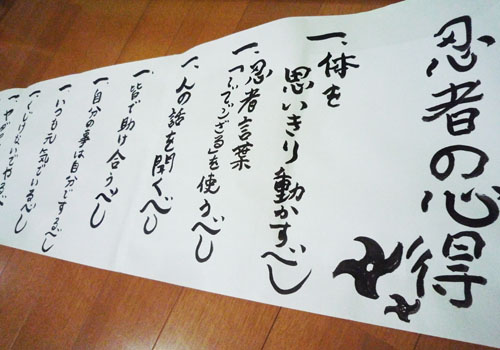 忍者の心得
一、体を
思いきり動かすべし
一、忍者言葉
「〜でござる」を使うべし
一、人の話を聞くべし
一、皆で助け合うべし
一、自分の事は自分でするべし
一、いつも元気でいるべし
一、くじけないでやるべし